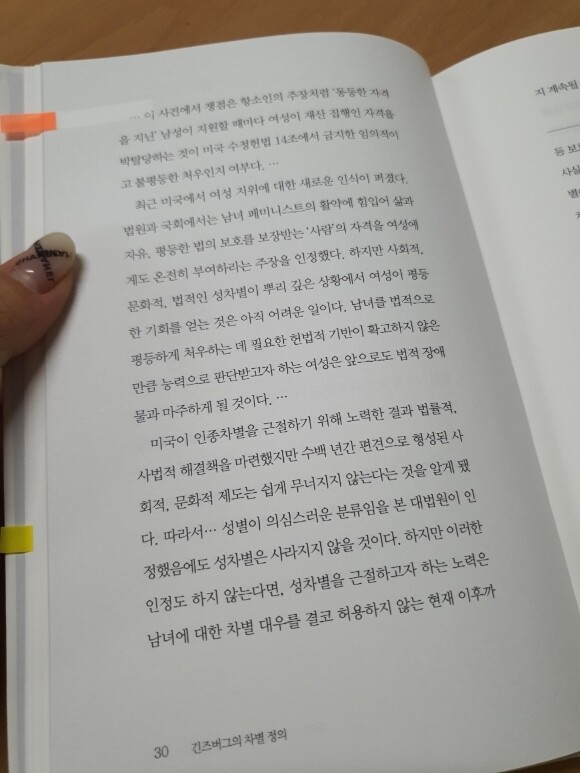 … 이 사건에서 쟁점은 항소인의 주장처럼 ‘동등한 자격
을 지닌’ 남성이 지원할 때마다 여성이 재산 집행인 자격을
박탈당하는 것이 미국 수정헌법 14조에서 금지한 임의적이
고 불평등한 처우인지 여부다. …
최근 미국에서 여성 지위에 대한 새로운 인식이 퍼졌다.
법원과 국회에서는 남녀 페미니스트의 활약에 힘입어 삶과
자유, 평등한 법의 보호를 보장받는 ‘사람’의 자격을 여성에
게도 온전히 부여하라는 주장을 인정했다. 하지만 사회적,
문화적, 법적인 성차별이 뿌리 깊은 상황에서 여성이 평등
한 기회를 얻는 것은 아직 어려운 일이다. 남녀를 법적으로
평등하게 처우하는 데 필요한 헌법적 기반이 확고하지 않은
만큼 능력으로 판단받고자 하는 여성은 앞으로도 법적 장애
물과 마주하게 될 것이다. …
미국이 인종차별을 근절하기 위해 노력한 결과 법률적,
사법적 해결책을 마련했지만 수백 년간 편견으로 형성된 사
회적, 문화적 제도는 쉽게 무너지지 않는다는 것을 알게 됐
다. 따라서… 성별이 의심스러운 분류임을 본 대법원이 인
정했음에도 성차별은 사라지지 않을 것이다. 하지만 이러한
인정도 하지 않는다면, 성차별을 근절하고자 하는 노력은
남녀에 대한 차별 대우를 결코 허용하지 않는 현재 이후까
30 긴즈버그의 차별 정의
지 계속될
등 보호
사실
별